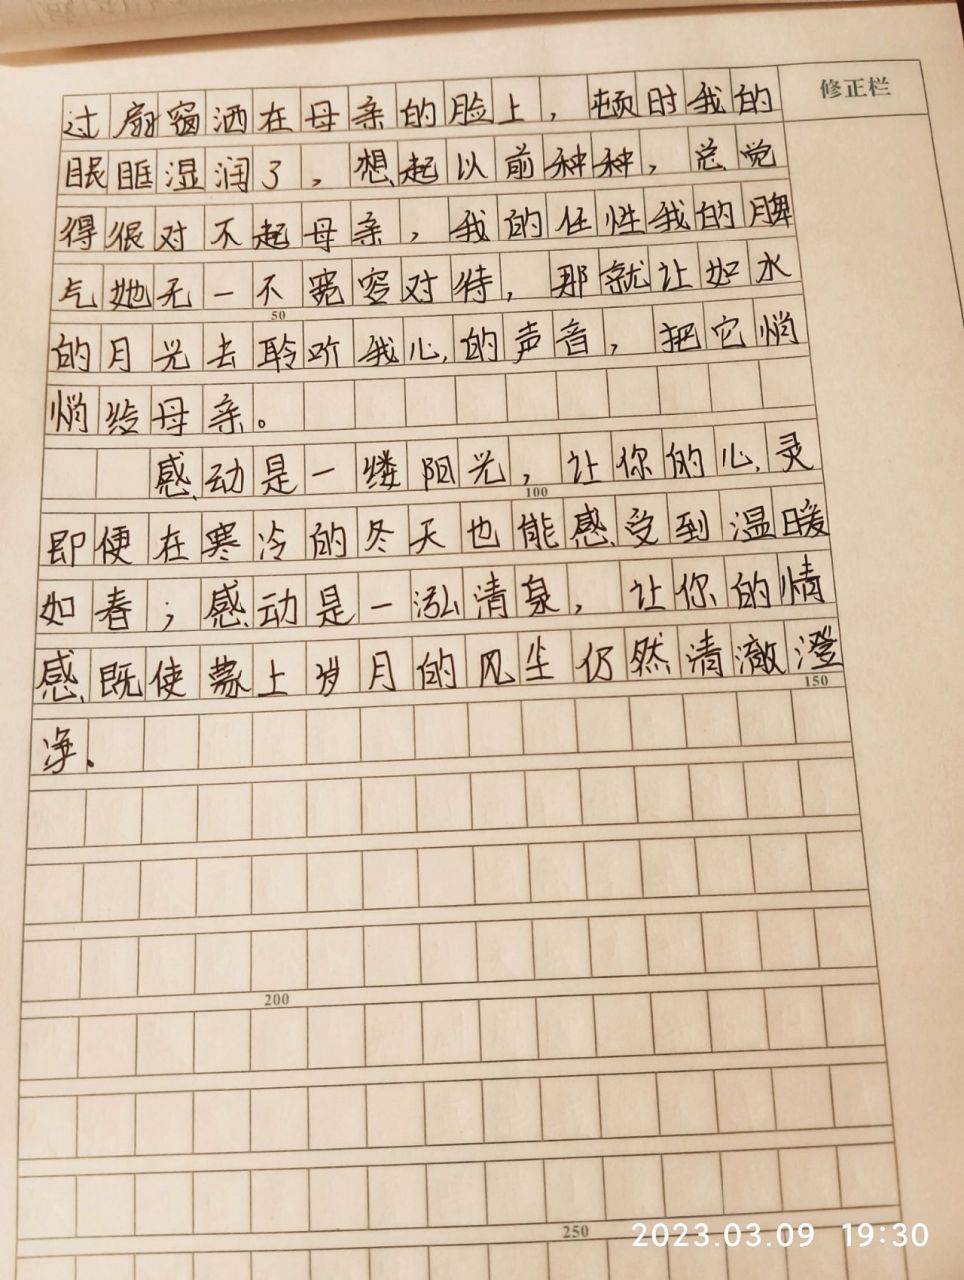 修正栏
过扇窗洒在母亲的脸上，顿时我的
眼眶湿润了，想起以前种种，总觉
得很对不起母亲，我的任性我的脾
气她无一不宽容对待，那就让如水
50
的月光去聆听我心的声音，把它悄
悄给母亲。
感动是一缕阳光，让你的心灵
100
即便在寒冷的冬天也能感受到温暖
如春；感动是一泓清泉，让你的情
感既使蒙上岁月的风尘仍然清澈澄
150
净。
200
250
2023.03.09 19:30